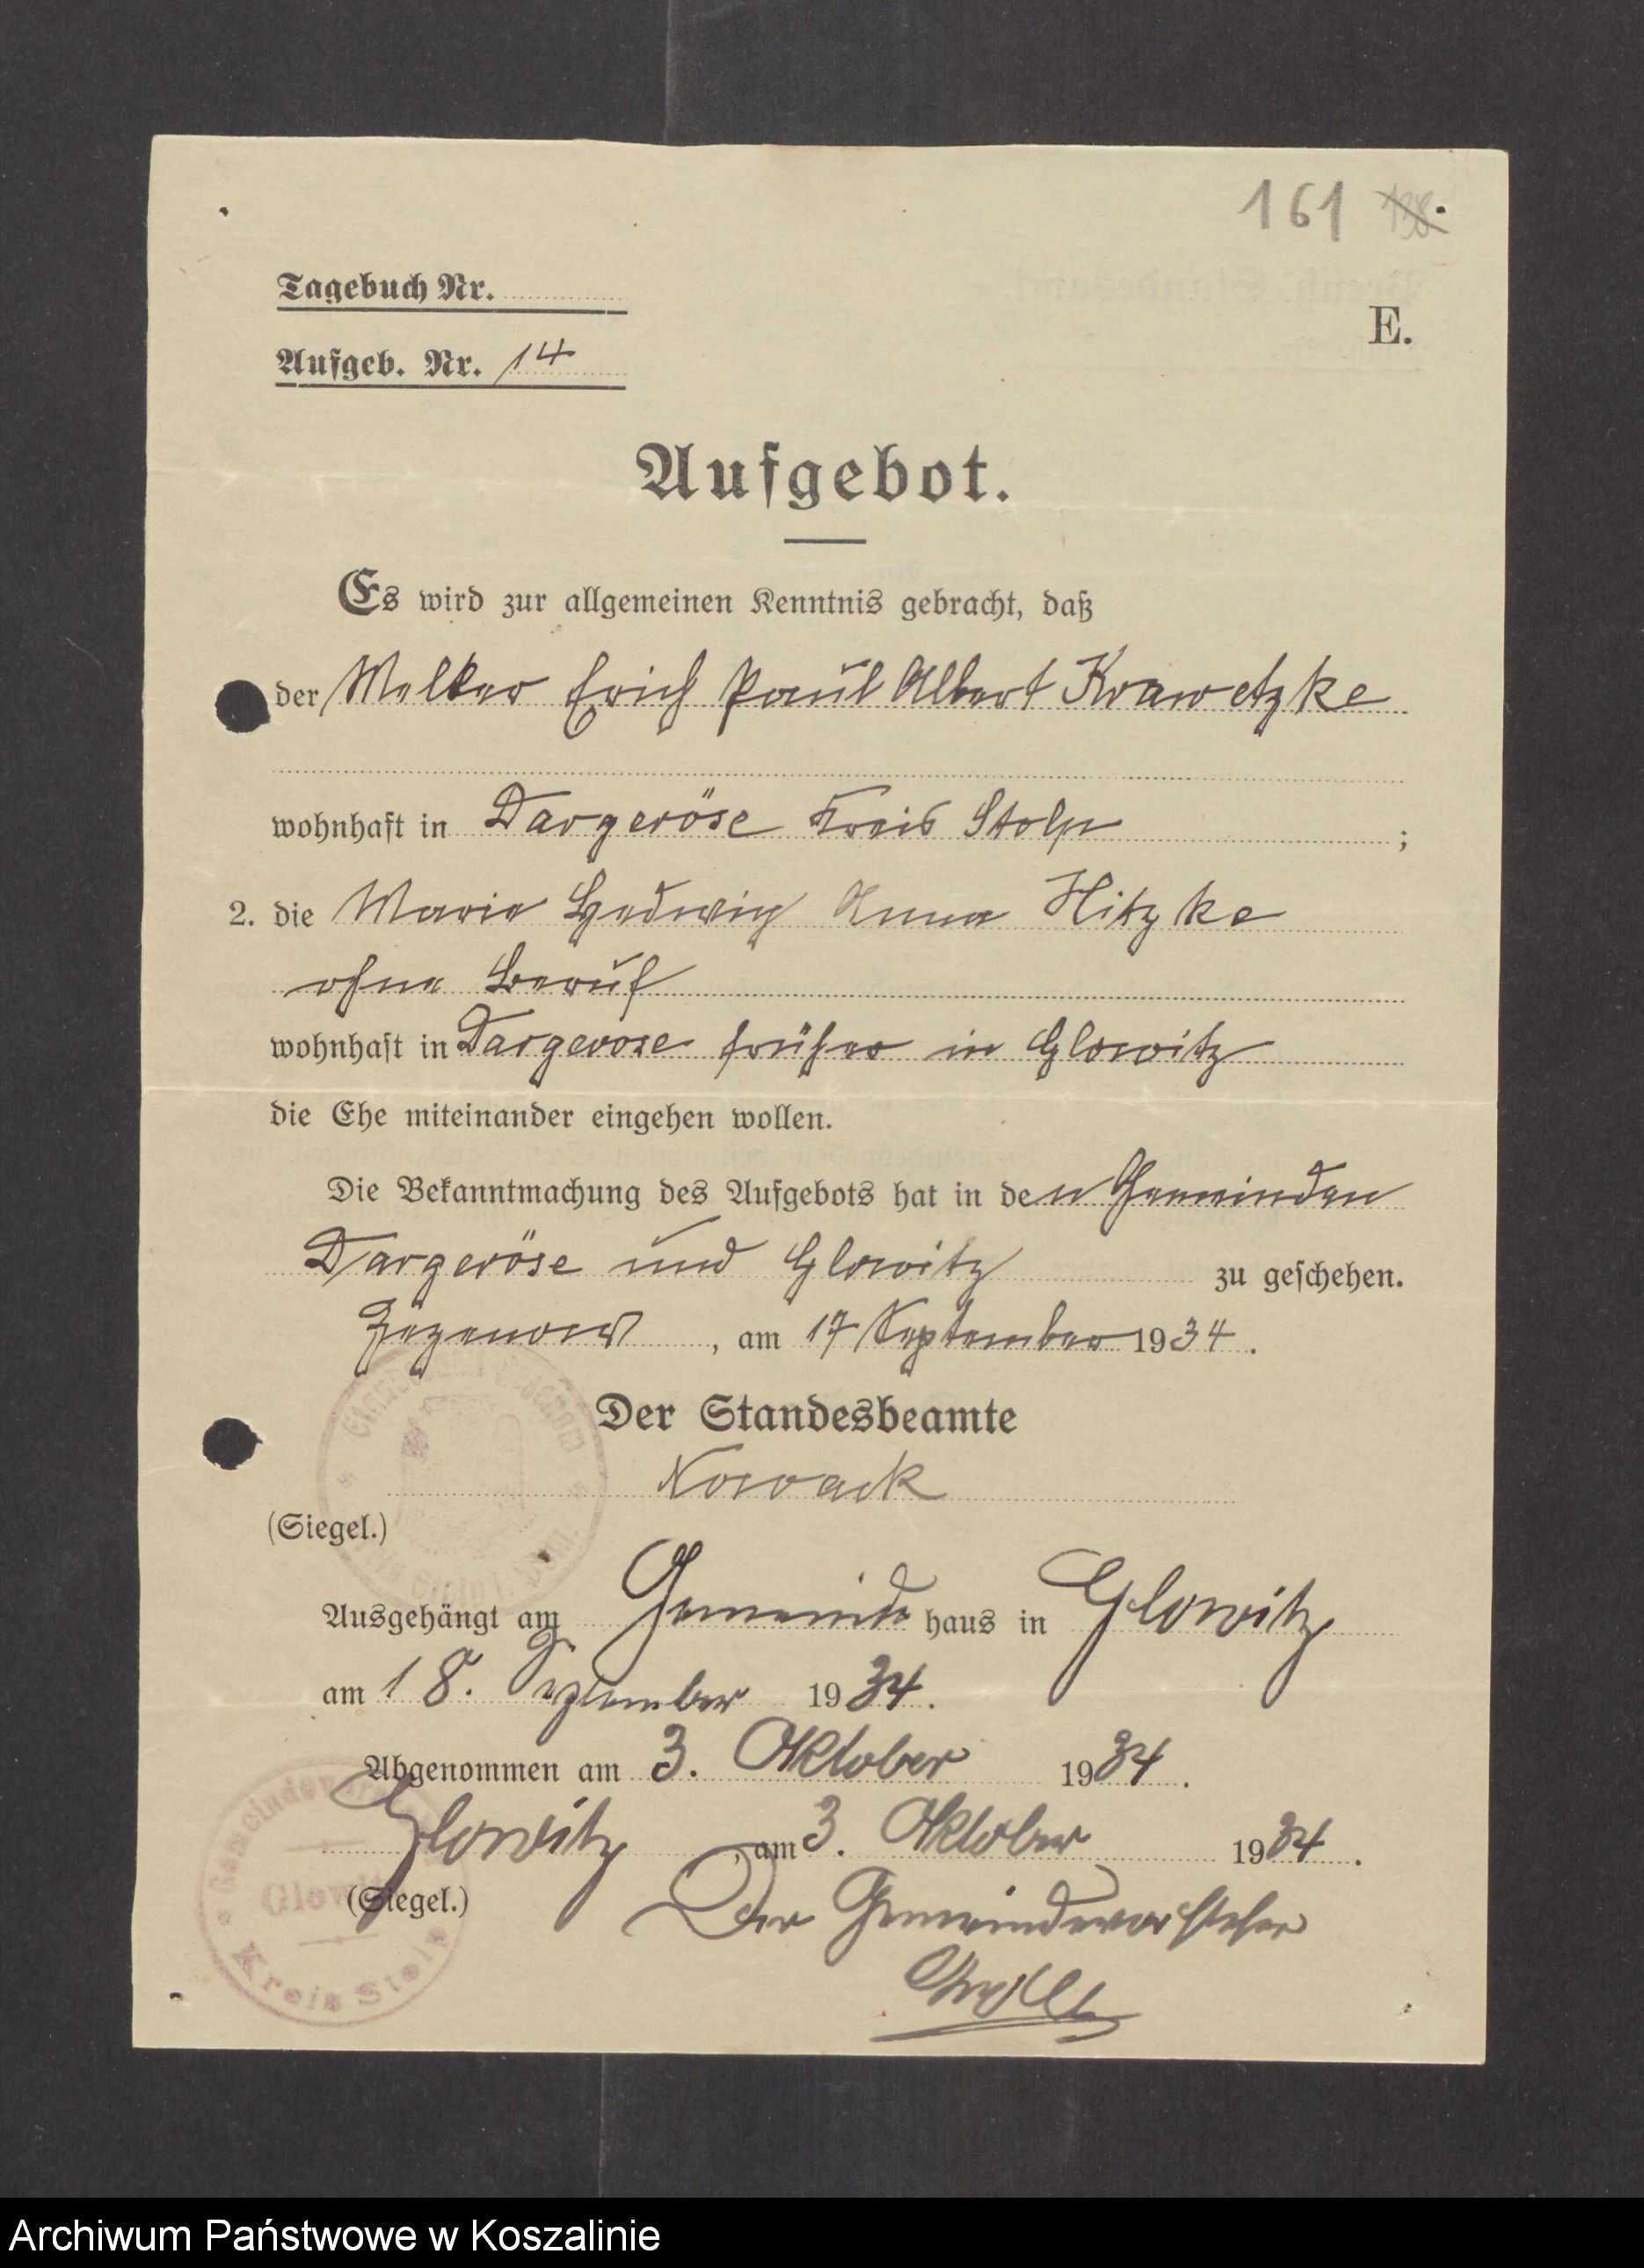 161 138
Tagebuch Nr.
E.
Aufgeb. Nr. 14
Aufgebot.
Es wird zur allgemeinen Kenntnis gebracht, daß
der Melker Erich Paul Albert Krawetzke
wohnhaft in Dargeröse Kreis Stolp ;
2. die Marie Hedwig Anna Hitzke
ohne Beruf
wohnhaft in Dargerose früher in Glowitz
die Ehe miteinander eingehen wollen.
Die Bekanntmachung des Aufgebots hat in den Gemeinden
Dargeröse und Glowitz zu geschehen.
Zezenow, am 17 September 1934.
Der Standesbeamte
Nowack
(Siegel.)
Ausgehängt am Gemeindehaus in Glowitz
am 18. September 1934.
Abgenommen am 3. Oktober 1934.
Glowitz, am 3. Oktober 1934.
(Siegel.) Der Gemeindevorsteher
Glowitz
Kreis Stolp
Archiwum Państwowe w Koszalinie